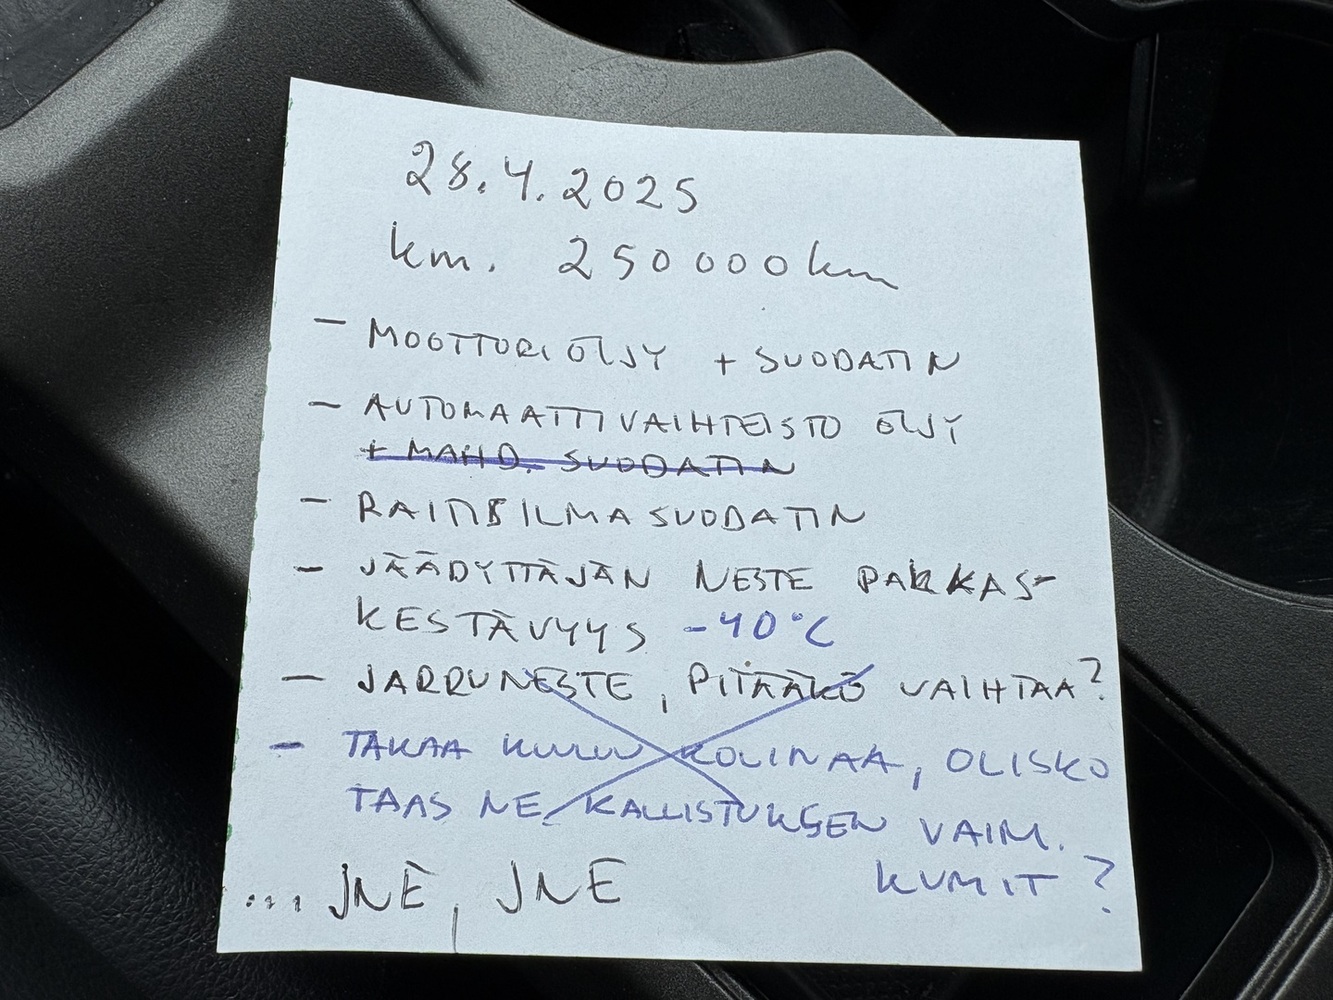 28.4.2025
km. 250000km
- MOOTTORIÖLJY + SUODATIN
- AUTOMAATTIVAIHTEISTO ÖLJY
+ MAHD. SUODATIN
- RAITISILMASUODATIN
- JÄÄDYTTÄJÄN NESTE PAKKAS-
KESTÄVYYS -40°C
- JARRUNESTE, PITÄÄKÖ VAIHTAA?
- TAKAA KUULUU KOLINAA, OLISKO
TAAS NE KALLISTUKSEN VAIM.
KUMIT?
... JNE, JNE